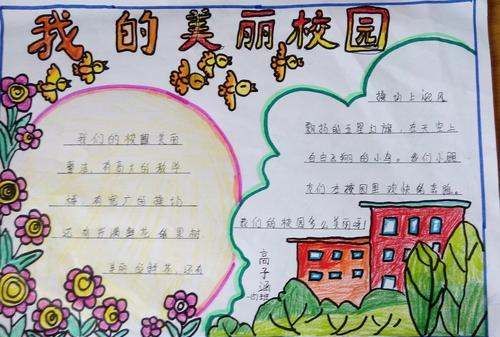 我的美丽校园
我们的校园美丽
整洁,有高大的教学
楼,有宽广的操场
还有开满鲜花
美丽的鲜花,还有
操场上迎风
飘扬的五星红旗,在天空上
自自飞翔的小鸟。我们小朋
友们在校园里欢快唱着歌。
我们的校园多么美丽啊!
高子涵